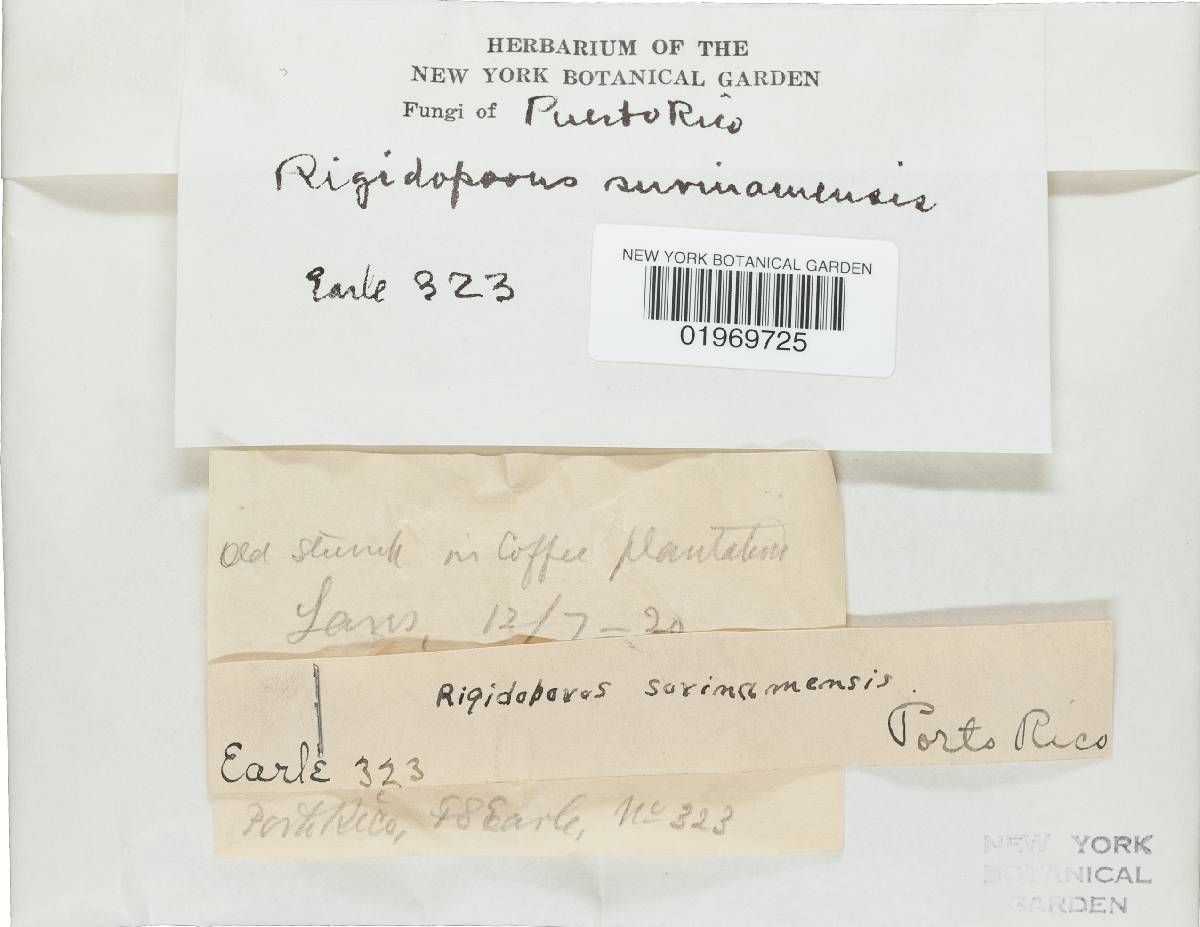 HERBARIUM OF THE
NEW YORK BOTANICAL GARDEN
Fungi of Puerto Rico
Rigidoporus surinamensis
Earle 323
NEW YORK BOTANICAL GARDEN
01969725
Old stump in Coffee plantation
12/7-20
Rigidoporus surinamensis.
Earle 323
Porto Rico
Porto Rico, FS Earle, No 323
NEW YORK
BOTANICAL
GARDEN